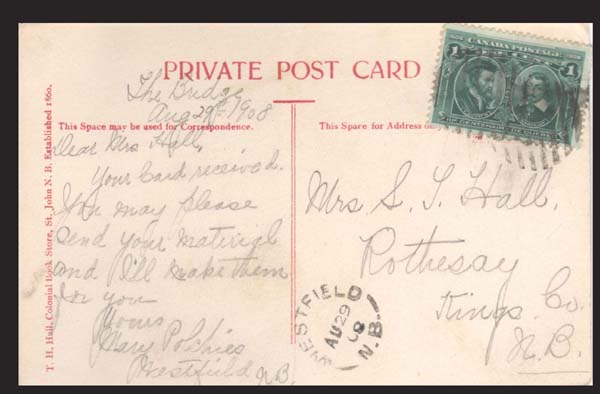 PRIVATE POST CARD
The Bridge
Aug 29th 1908
This Space may be used for Correspondence.
Dear Mrs Hall,
Your Card received.
You may please
send your material
and I'll make them
for you
Yours
Mary Polchies
Westfield N.B.
T. H. Hall, Colonial Book Store, St. John N. B. Established 1860.
1 CANADA POSTAGE 1
This Space for Address
Mrs. S. T. Hall,
Rothesay
Kings. Co.
N.B.
WESTFIELD
AU 29
08
N.B.